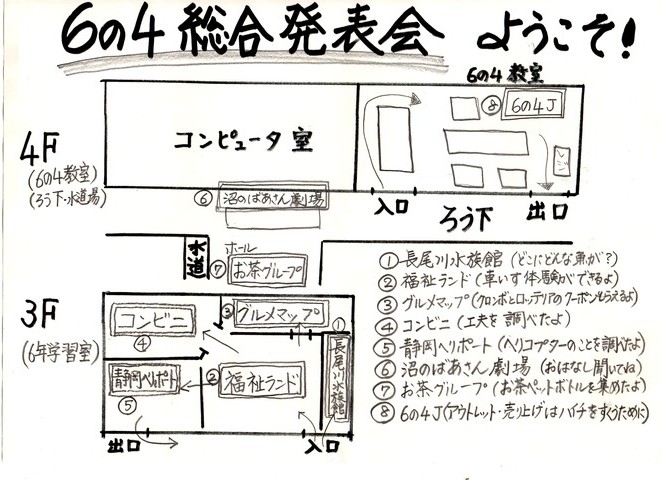 6の4 総合発表会 ようこそ!
6の4 教室
4F
(6の4教室)
(ろう下・水道場)
コンピュータ室
⑧ 6の4J
レジ
⑥ 沼のばあさん劇場
入口
ろう下
出口
水道
ホール
⑦ お茶グループ
3F
(6年学習室)
コンビニ
④
③ グルメマップ
①
長尾川水族館
静岡ヘリポート
⑤
② 福祉ランド
出口
入口
① 長尾川水族館 (どこにどんな魚が?)
② 福祉ランド (車いす体験ができるよ)
③ グルメマップ (クロンボとロッテリアのクーポンもらえるよ)
④ コンビニ (工夫を調べたよ)
⑤ 静岡ヘリポート (ヘリコプターのことを調べたよ)
⑥ 沼のばあさん劇場 (おはなし聞いてね)
⑦ お茶グループ (お茶ペットボトルを集めたよ)
⑧ 6の4J (アウトレット・売り上げはハイチをすくうために)